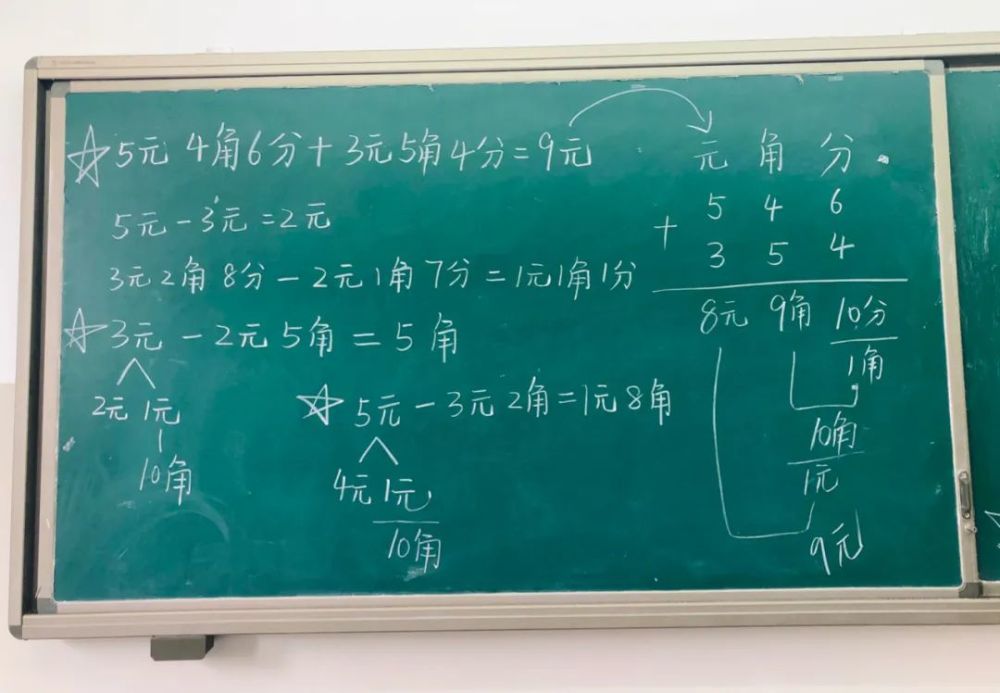 ☆5元4角6分+3元5角4分=9元
5元-3元=2元
3元2角8分-2元1角7分=1元1角1分
☆3元-2元5角=5角
2元 1元
10角
☆5元-3元2角=1元8角
4元 1元
10角
元 角 分
5 4 6
+ 3 5 4
8元 9角 10分
1角
10角
1元
9元